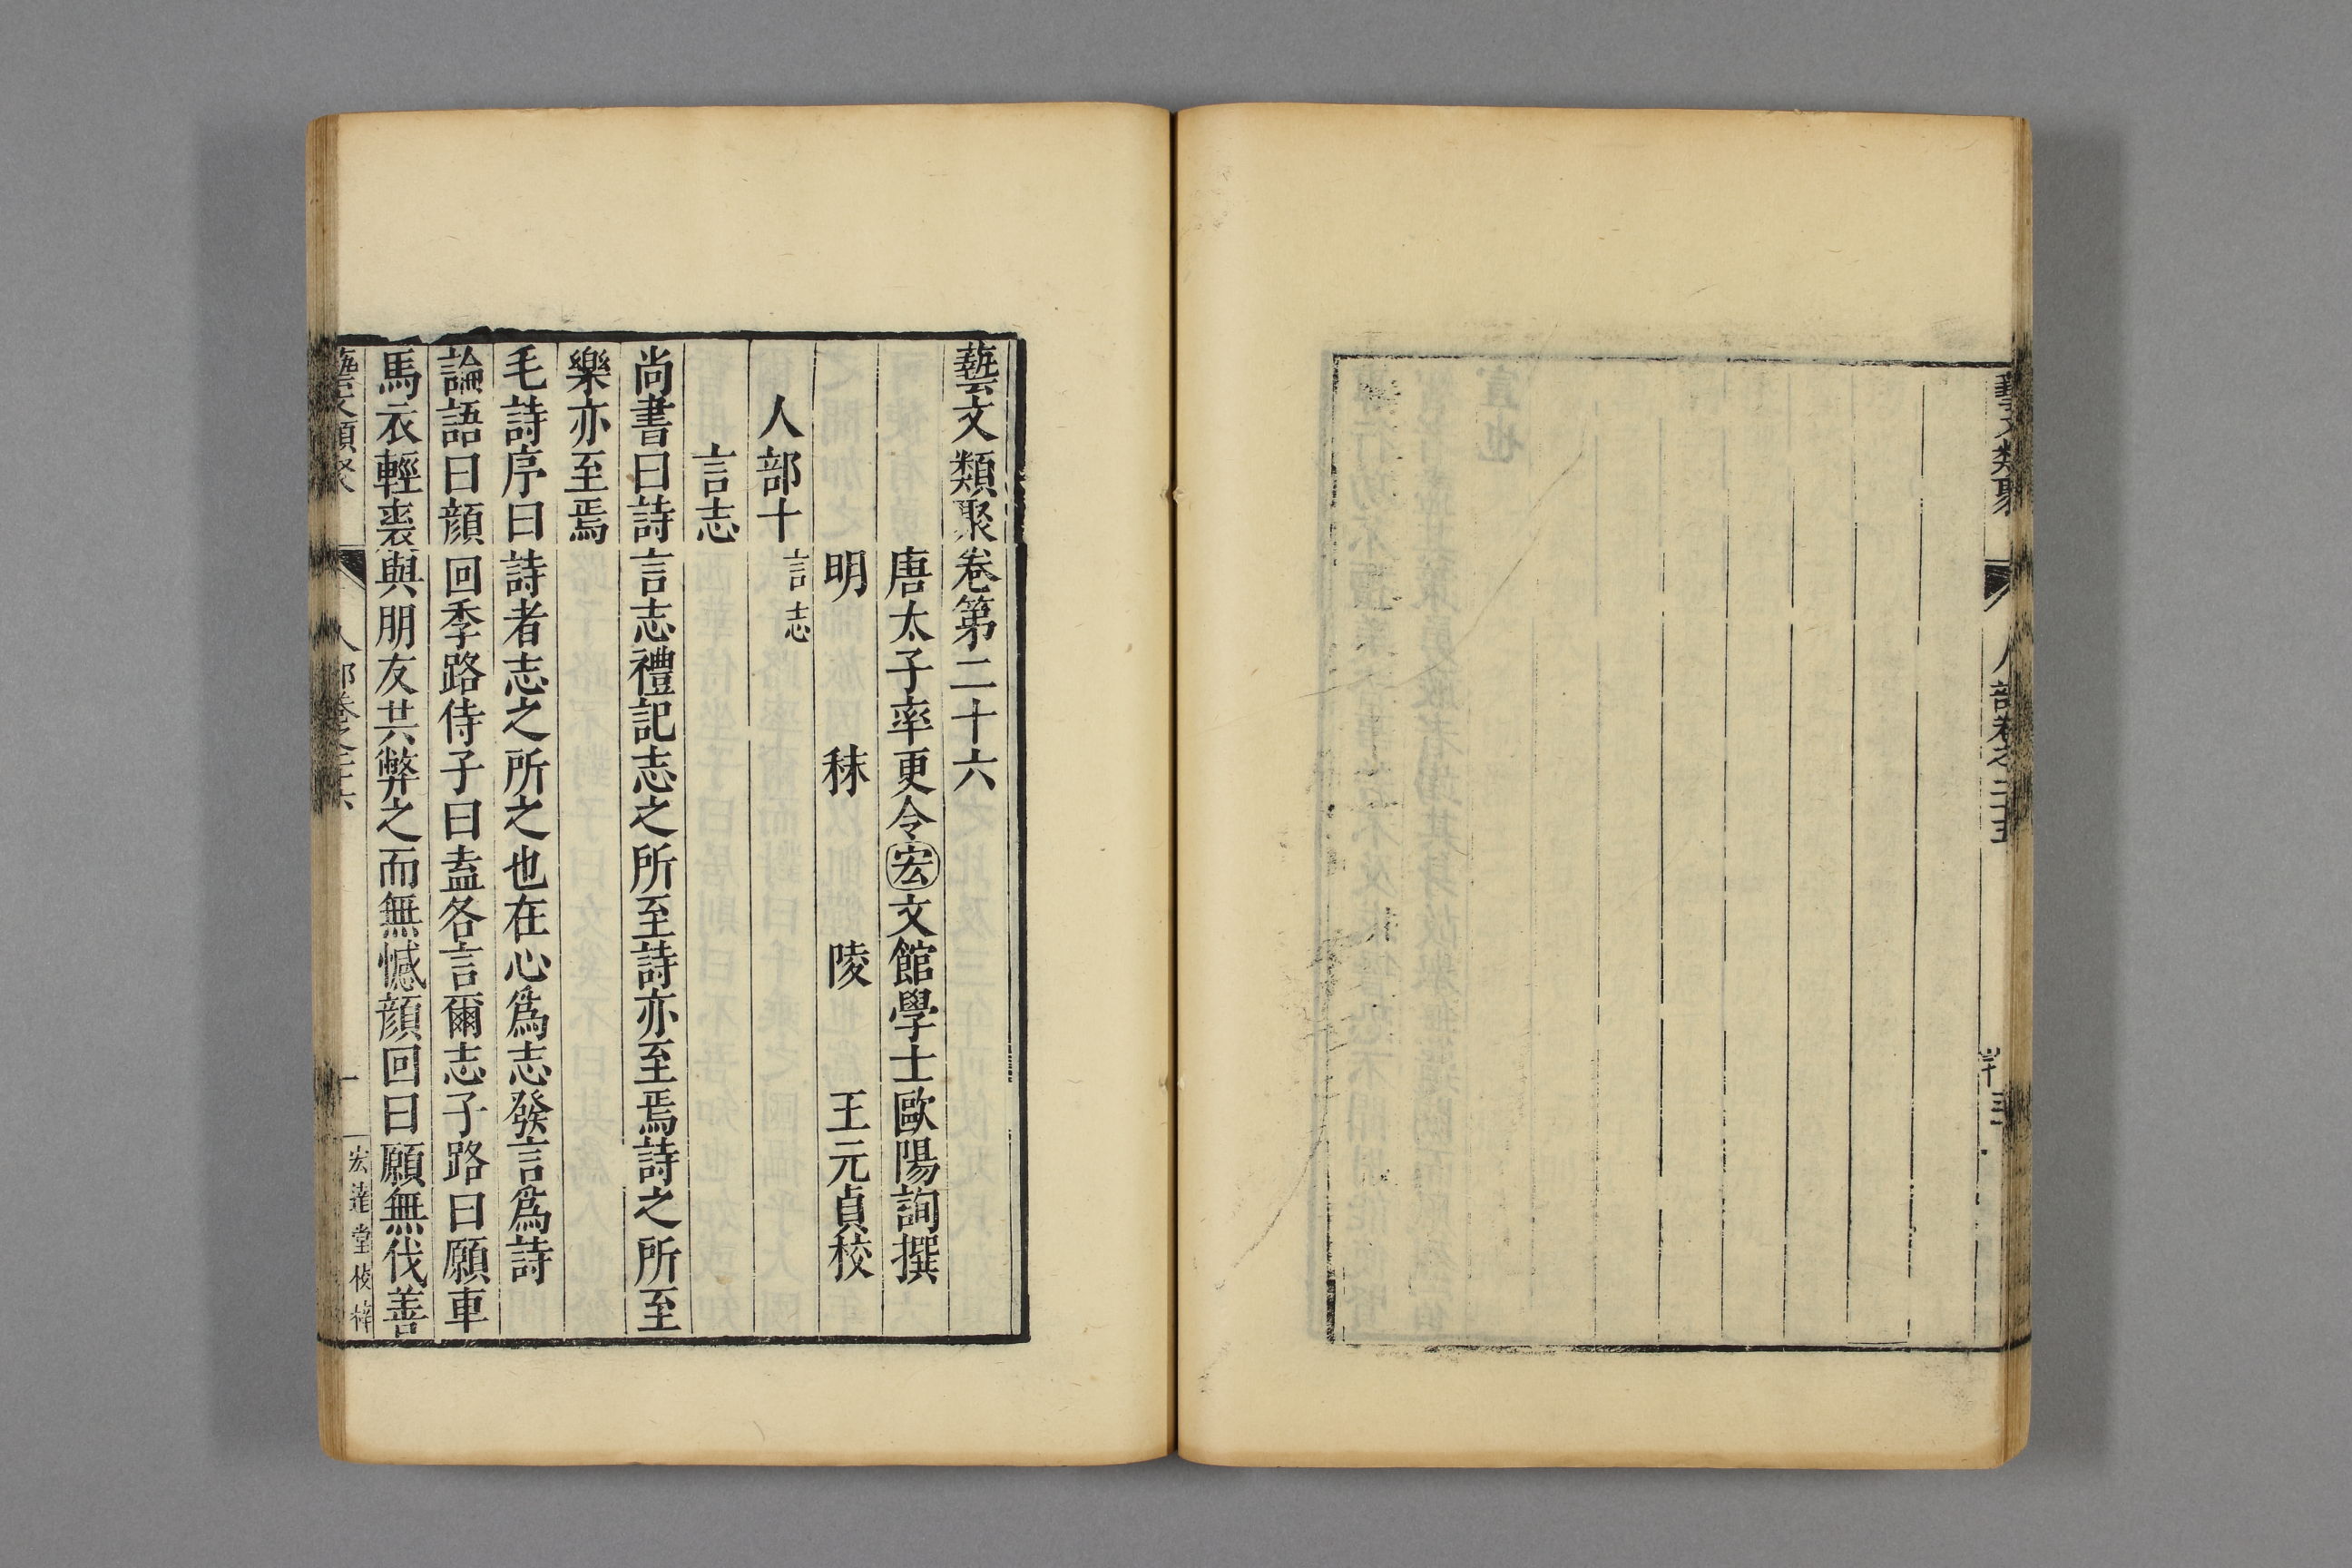 藝文類聚
人部卷之二十五
藝文類聚卷第二十六
唐太子率更令宏文館學士歐陽詢撰
明秣陵王元貞校
人部十言志
言志
尚書曰詩言志禮記志之所至詩亦至焉詩之所至
樂亦至焉
毛詩序曰詩者志之所之也在心爲志發言爲詩
論語曰顔回季路侍子曰盍各言爾志子路曰願車
馬衣輕裘與朋友共弊之而無憾顔回曰願無伐善
藝文類聚
人部卷之二十六
一
宏達堂校梓